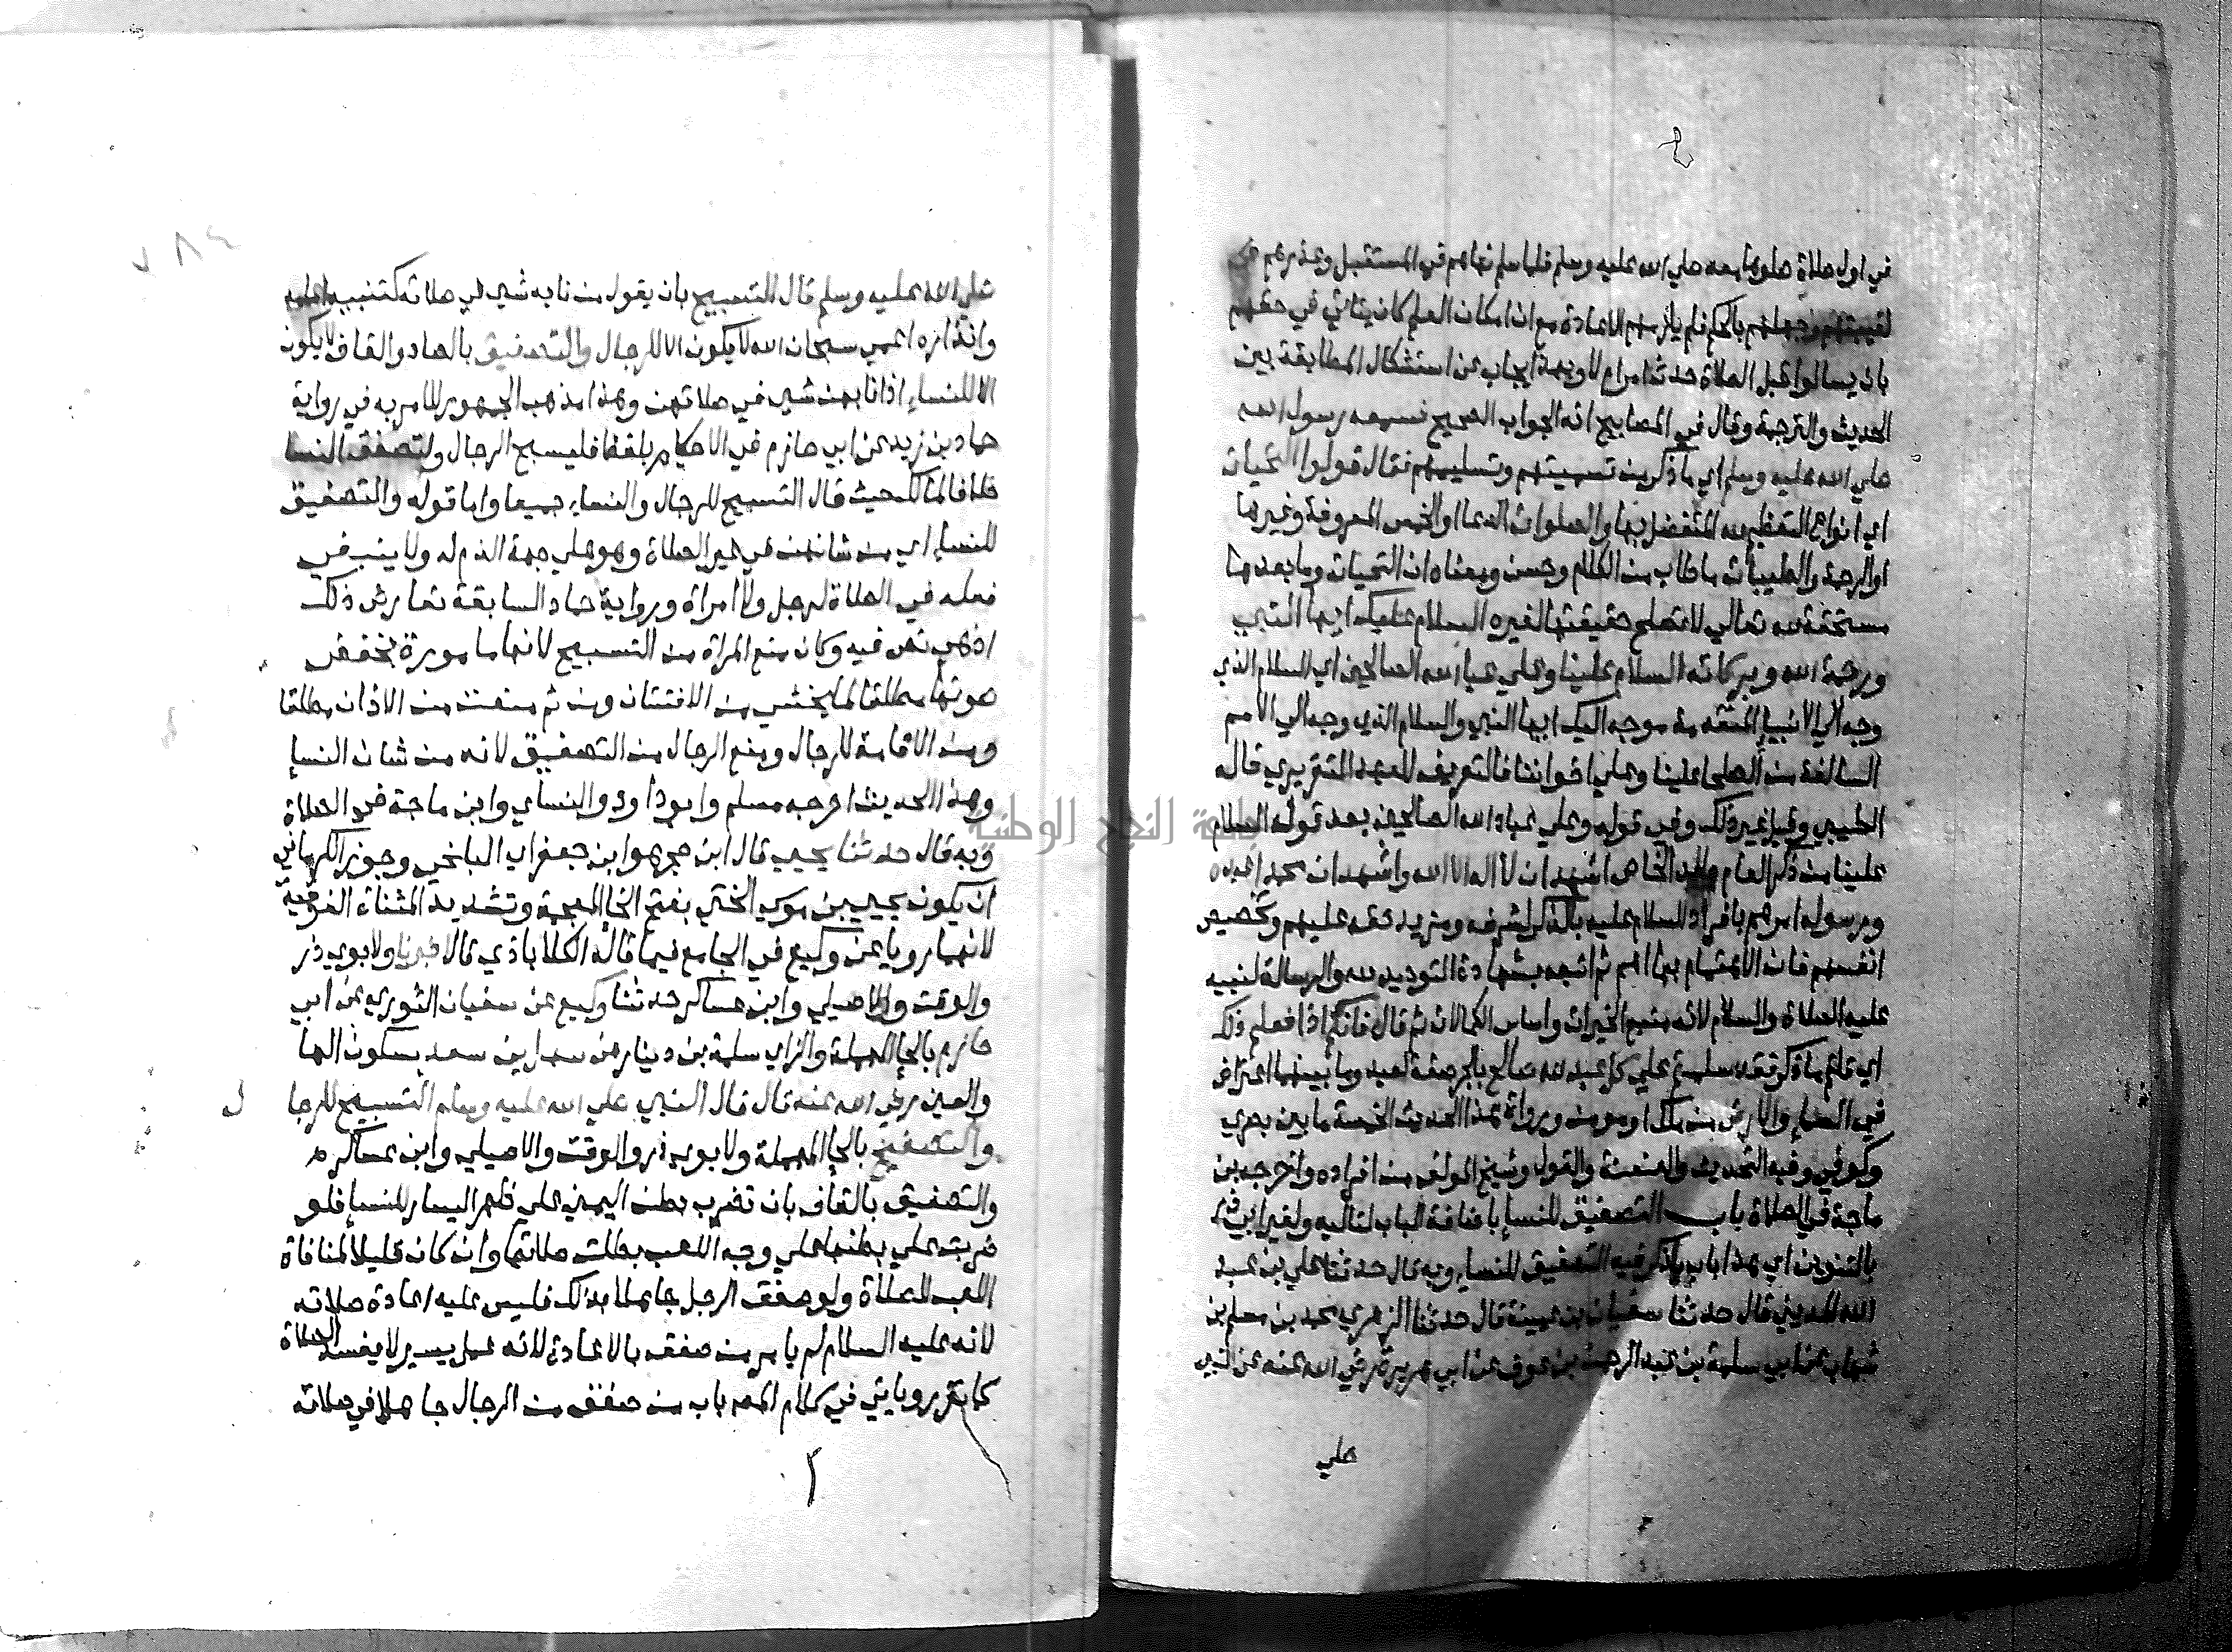 في اول صلاة صلوها معه صلي الله عليه وسلم فلما سلم نهاهم في المستقبل وعذرهم في
لغيبتهم وجهلهم بالحكم فلم يلزمهم الاعادة مع ان امكان العلم كان يتاتي في حقهم
بان يسالوا قبل الصلاة حدث امر ام لا وبهذا يجاب عن استشكال المطابقة بين
الحديث والترجمة وقال في المصابيح انه الجواب الصحيح فسمعه رسول الله
صلي الله عليه وسلم اي ما ذكر من تسميتهم وتسليمهم فقال قولوا التحيات
اي انواع التعظيم لله المتفضل بها والصلوات الدعا او الخمس المعروفة وغيرها
او الرحمة والطيبات ما طاب من الكلام وحسن ومعناه ان التحيات وما بعدها
مستحقة لله تعالي لا تصلح حقيقتها لغيره السلام عليك ايها النبي
ورحمة الله وبركاته السلام علينا وعلي عباد الله الصالحين اي السلام الذي
وجه الي الانبيا المتقدمة موجه اليك ايها النبي والسلام الذي وجه الي الامم
السالفة من الصلحا علينا وعلي اخواننا فالتعريف للعهد التقريري قاله
الطيبي وقيل غير ذلك وفي قوله وعلي عباد الله الصالحين بعد قوله السلام
علينا من ذكر العام بعد الخاص اشهد ان لا اله الا الله واشهد ان محمدا عبده
ورسوله امرهم بافراد السلام عليه بالذكر لشرفه ومزيد حقه عليهم وتخصيص
انفسهم فان الاهتمام بها اهم ثم اتبعه بشهادة التوحيد لله والرسالة لنبيه
عليه الصلاة والسلام لانه منبع الخيرات واساس الكمالات ثم قال فانكم اذا فعلتم ذلك
اي قلتم ما ذكر فقد سلمتم علي كل عبد لله صالح بالجر صفة لعبد وما بينهما اعتراض
في السماء والارض من ملك او مومن ورواة هذا الحديث الخمسة ما بين بصري
وكوفي وفيه التحديث والعنعنة والقول وشيخ المولف من افراده واخرجه بن
ماجة في الصلاة باب التصفيق للنسا باضافة الباب لتاليه ولغير ابي ذر
بالتنوين اي هذا باب يذكر فيه التصفيق للنساء وبه قال حدثنا علي بن عبد
الله المديني قال حدثنا سفيان بن عيينة قال حدثنا الزهري محمد بن مسلم بن
شهاب عن ابي سلمة بن عبد الرحمن بن عوف عن ابي هريرة رضي الله عنه عن النبي
صلي
٧٨٤
صلي الله عليه وسلم قال التسبيح بان يقول من نابه شي في صلاته كتنبيه امامه
وانذاره اعمي سبحان الله لا يكون الا للرجال والتصفيق بالصاد والقاف لا يكون
الا للنساء اذا نابهن شي في صلاتهن وهذا مذهب الجمهور للامر به في رواية
حماد بن زيد عن ابي حازم في الاحكام بلفظ فليسبح الرجال ولتصفق النسا
خلافا لمالك حيث قال التسبيح للرجال والنساء جميعا واما قوله والتصفيق
للنسا اي من شانهن في غير الصلاة وهو علي جهة الذم له ولا ينبغي
فعله في الصلاة لرجل ولا امراة ورواية حماد السابقة تعارض ذلك
اذ هي نص فيه وكان منع المراة من التسبيح لانها مامورة بخفض
صوتها مطلقا لما يخشي من الافتتان ومن ثم منعت من الاذان مطلقا
ومن الاقامة للرجال ومنع الرجال من التصفيق لانه من شان النسا
وهذا الحديث اخرجه مسلم وابو داود والنساي وابن ماجة في الصلاة
وبه قال حدثنا يحيي قال ابن حجر هو ابن جعفر اي البلخي وجوز الكرماني
ان يكون يحيي بن موسي الختي بفتح الخا المعجمة وتشديد المثناة الفوقية
لانهما رويا عن وكيع في الجامع فيما قاله الكلاباذي قال اخبرنا ولابوي ذر
والوقت والاصيلي وابن عساكر حدثنا وكيع عن سفيان الثوري عن ابي
حازم بالحا المهملة والزاي سلمة بن دينار عن سهل بن سعد بسكون الها
والعين رضي الله عنه قال قال النبي صلي الله عليه وسلم التسبيح للرجا ل
والتصفيح بالحا المهملة ولابوي ذر والوقت والاصيلي وابن عساكر
والتصفيق بالقاف بان تضرب بطن اليمني علي ظهر اليسار للنسا فلو
ضربت علي بطنها علي وجه اللعب بطلت صلاتها وان كان قليلا لمنافاة
اللعب للصلاة ولو صفق الرجل جاهلا بذلك فليس عليه اعادة صلاته
لانه عليه السلام لم يامر من صفق بالاعادة لانه عمل يسير لا يفسد الصلاة
كما تقرر وياتي في كلام المص باب من صفق من الرجال جاهلا في صلاته
جامعة النجاح الوطنية